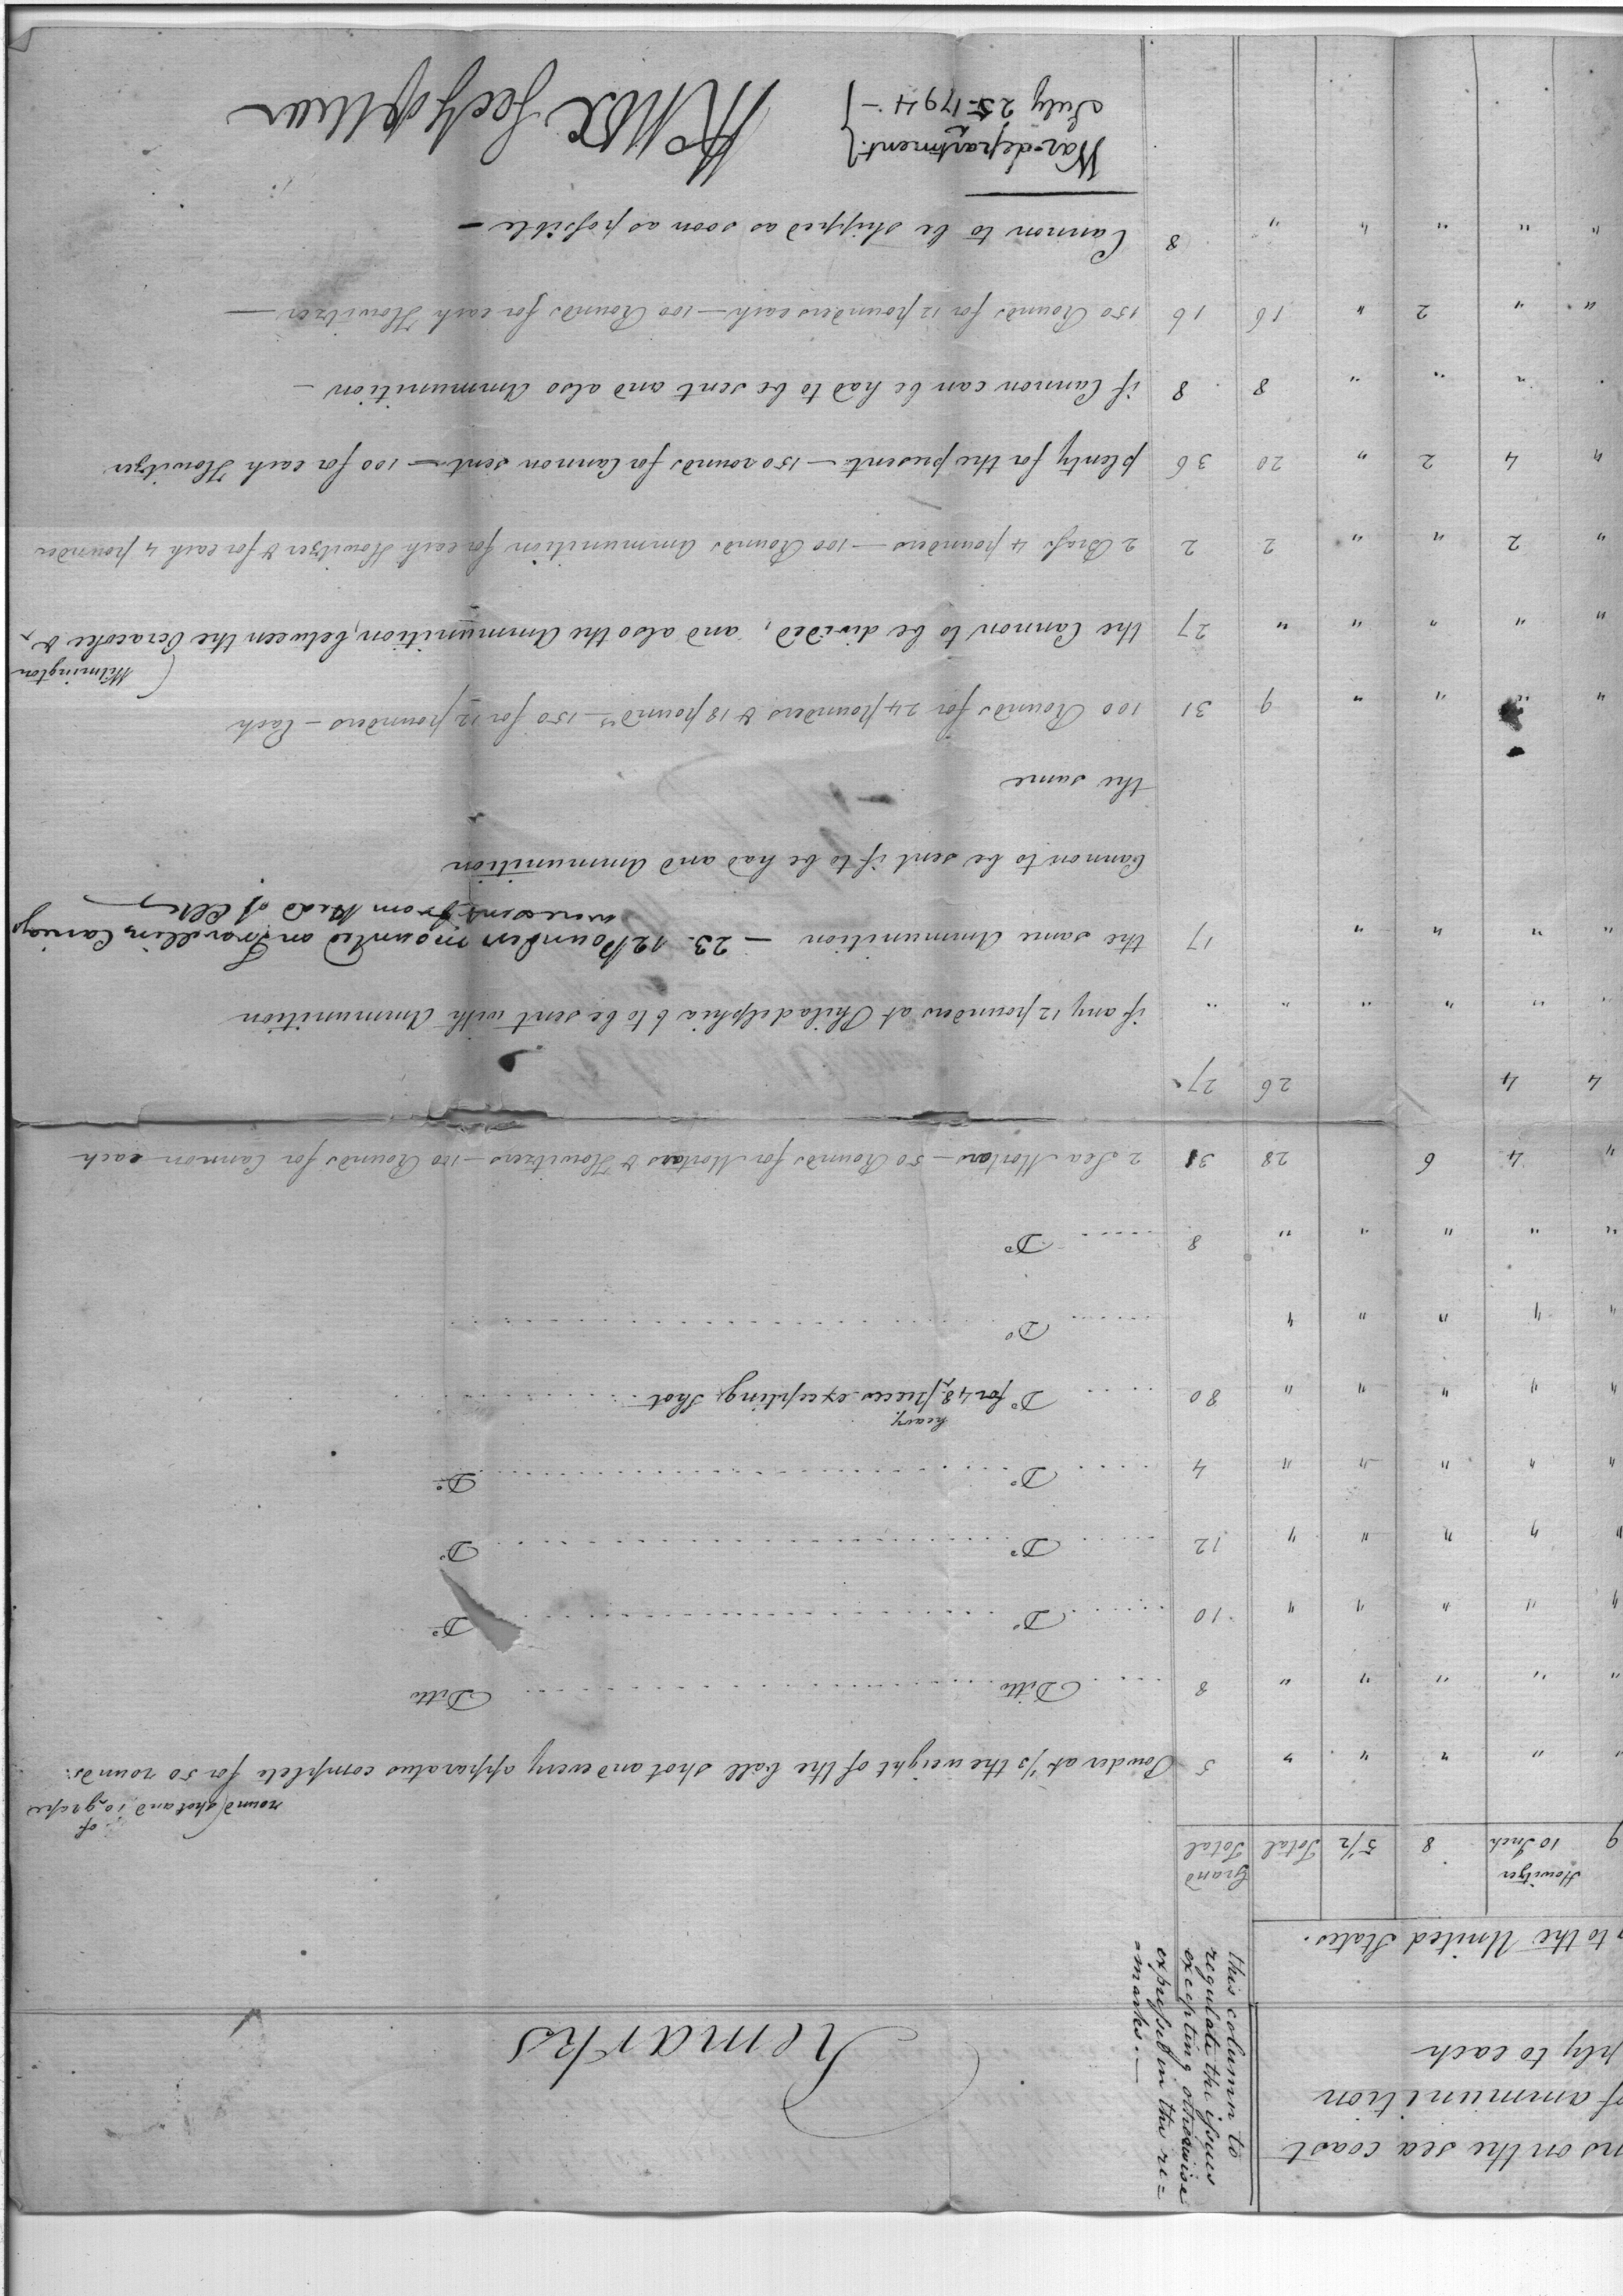 ns on the sea coast
of ammunition
ply to each
to the United States.
this column to
regulate the issues
excepting otherwise
expressed in the re=
=marks.—
Remarks
9 | Howitzer 10 Inch | 8 | 5½ | Total | Grand Total
" | " | " | " | " | 5 | Powder at ⅓ the weight of the ball shot and every apparatus complete for 50 rounds:
round shot and 10 of grape
" | " | " | " | " | 8 | Ditto Ditto
" | " | " | " | " | 10 | Do Do
" | " | " | " | " | 12 | Do Do
" | " | " | " | " | 4 | Do Do
" | " | " | " | " | 80 | Do for 48 heavy pieces excepting shot
" | " | " | " | " | Do
" | " | " | " | " | 8 | Do
" | 4 | 6 | 28 | 31 | 2 Sea Mortars — 50 Rounds for Mortars & Howitzers — 100 Rounds for Cannon each
4 | 4 | 26 | 27
" | " | " | " | " | " | if any 12 pounders at Philadelphia 6 to be sent with Ammunition
" | " | " | " | 17 | the same Ammunition — 23. 12 Pounders mounted on Travelling Carriages
were sent from Head of Elk
Cannon to be sent if to be had and Ammunition
the same
" | " | " | " | 9 | 31 | 100 Rounds for 24 pounders & 18 pounds — 150 for 12 pounders — Each
" | " | " | " | " | 27 | the Cannon to be divided, and also the Ammunition, between the Ocracoke &
(Wilmington
" | 2 | " | " | 2 | 2 | 2 Brass 4 pounders — 100 Rounds Ammunition for each Howitzer & for each 4 pounder
" | 4 | 2 | " | 20 | 36 | plenty for the present — 150 rounds for Cannon sent — 100 for each Howitzer
" | " | " | 8 | 8 | if Cannon can be had to be sent and also Ammunition —
" | " | 2 | " | 16 | 16 | 150 Rounds for 12 pounders each — 100 Rounds for each Howitzer —
" | " | " | " | " | 8 | Cannon to be shipped as soon as possible —
War-department.}
July 25. 1794 — }
HKnox Secy of War